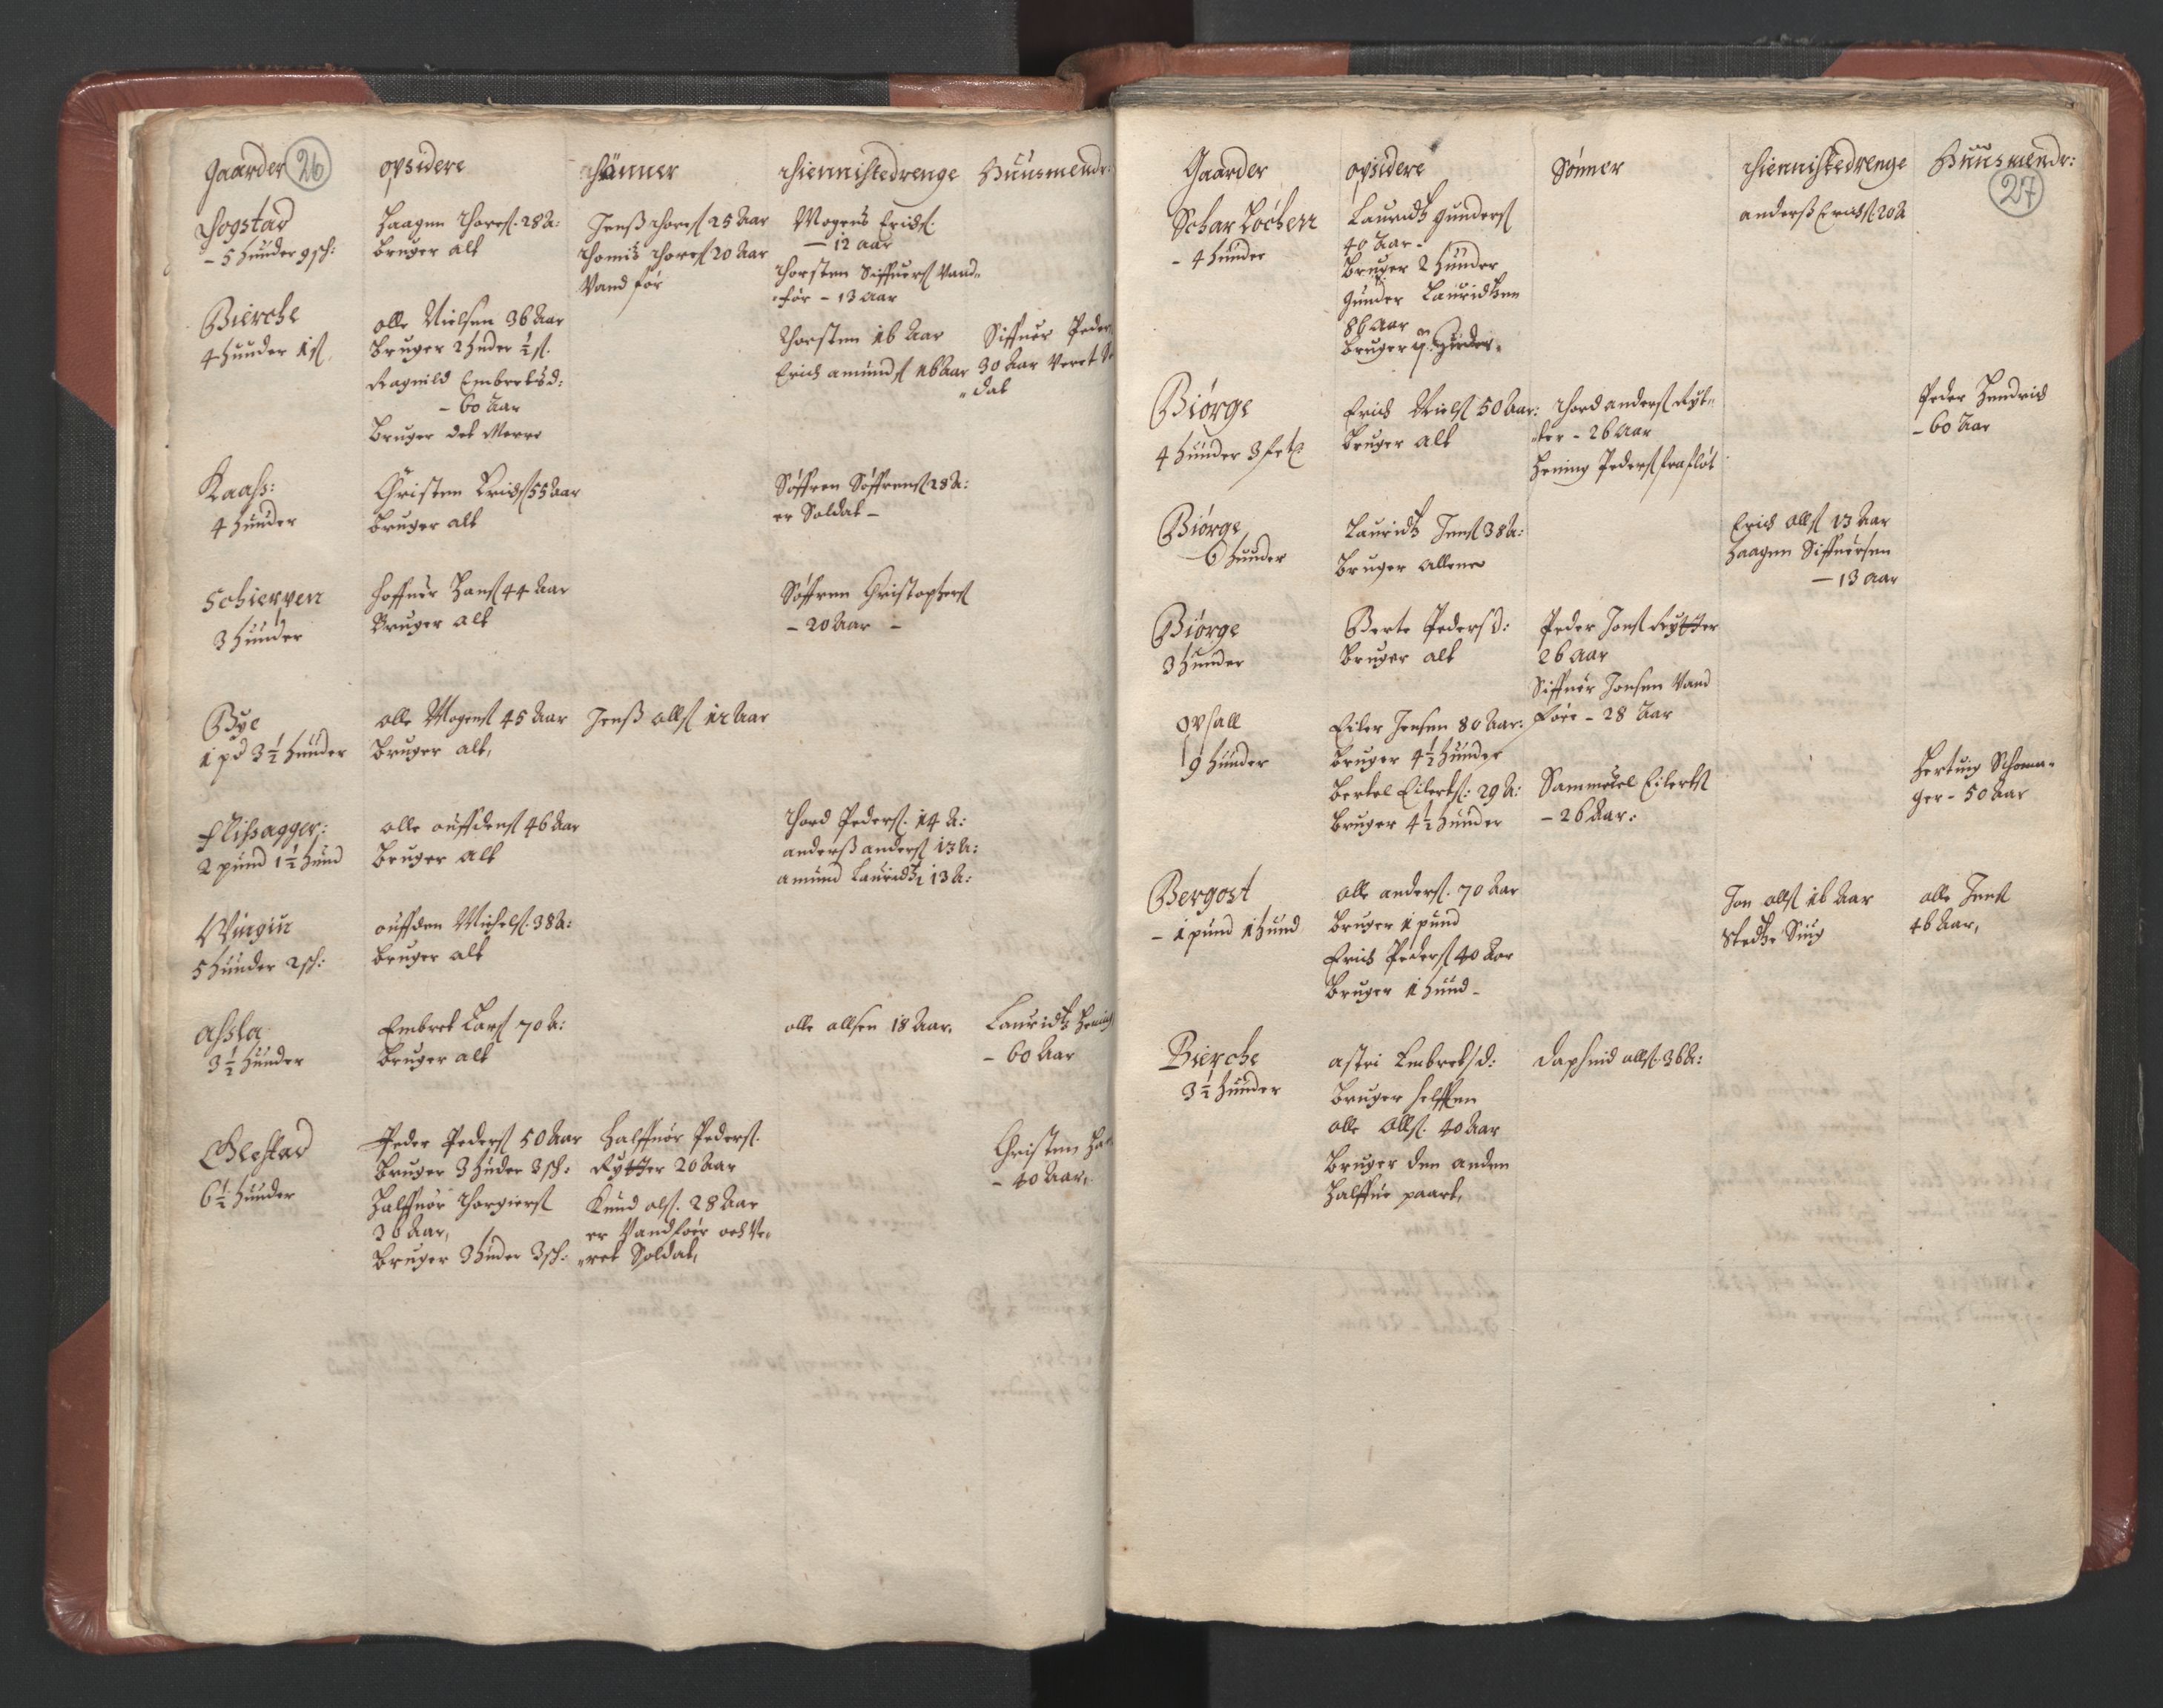 26
Gaarder
opsidere
Sønner
thiennistedrenge
Huusmendr:
Hogstad
- 5 hunder 9 sch:
Haagen thores. 28 A:
bruger alt
Jenß thores 25 Aar
thomis thores 20 Aar
Vandför
Mogens Erichs.
- 12 aar
thorsten Siffuers Vand-
-för - 13 aar
Bierche
4 hunder 1 s.
olle Nielsen 36 Aar
bruger 2 hunder ½ s.
Ragnild Embretsd:
- 60 Aar
bruger det Merre
thorsten 16 Aar
Erich amunds 16 Aar
Siffuer Peder
30 Aar Veret S
-dat
Kaass:
4 hunder
Christen Erichs 55 Aar
bruger alt
Søffren Søffrens 28 A:
er Soldat -
Schierven
3 hunder
hoffner Hans 44 Aar
Bruger alt
Søffren Christophers
- 20 Aar -
Bye
1 pd 3½ hunder
olle Mogens 45 Aar
bruger alt,
Jenß olls 12 Aar
Flissagger:
2 pund 1½ hund
olle auffdens 46 Aar
bruger alt
thord Peders. 14 A:
anderß anders 13 A:
amund Lauridtz 13 A:
Wingin
5 hunder 2 sch:
auffden Michels. 38 A:
bruger alt
assla
3½ hunder
Embret Lars 70 A:
bruger alt
olle allsen 18 Aar.
Lauridtz Hening
- 60 Aar
Glestad
6½ hunder
Peder Peders 50 Aar
bruger 3 hunder 3 sch:
Halffuor thorgiers
36 Aar,
bruger 3 hunder 3 sch:
Halffuor Peders.
Rytter 20 Aar
Knud ols. 28 Aar
er Vandföer och Ve-
-ret Soldat,
Christen Ha
- 40 Aar,
27
Gaarder
opsidere
Sønner
thiennistedrenge
Huusmendr:
Schar Lochen
- 4 hunder
Lauridtz gunders
40 Aar -
bruger 2 hunder
gunder Lauridtzen
86 Aar
bruger 2 hunder.
anderß Erichs 20 A
Biørge
4 hunder 3 sett
Erich Niels 50 Aar:
bruger alt
thord anders Ryt-
-ter - 26 Aar
Hening Peders fraflöt
Peder Hendrich
- 60 Aar
Biørge
6 hunder
Lauridtz Jens 38 A:
bruger allene
Erich olls 13 Aar
Haagen Siffuersen
- 13 aar
Biørge
3 hunder
Berte Pedersd:
bruger alt
Peder Jons Rytter
26 Aar
Siffuer Jonsen Vand
före - 28 Aar
ovsall
9 hunder
Eiler Jensen 80 Aar:
bruger 4½ hunder
Bertel Eilerts: 29 A:
bruger 4½ hunder
Sammuel Eilerts
- 26 Aar:
Hertuig Schoma-
ger - 50 Aar
Bergost
- 1 pund 1 hund
olle anders. 70 Aar
bruger 1 pund
Erich Peders 40 Aar
bruger 1 hund -
Jon olls 16 Aar
stedtze Siug
olle Jens
46 Aar,
Bierche
3½ hunder
astri Embretsd:
bruger helfften
olle olls. 40 Aar
bruger den anden
halffue paart,
Daphind olls. 36 A: